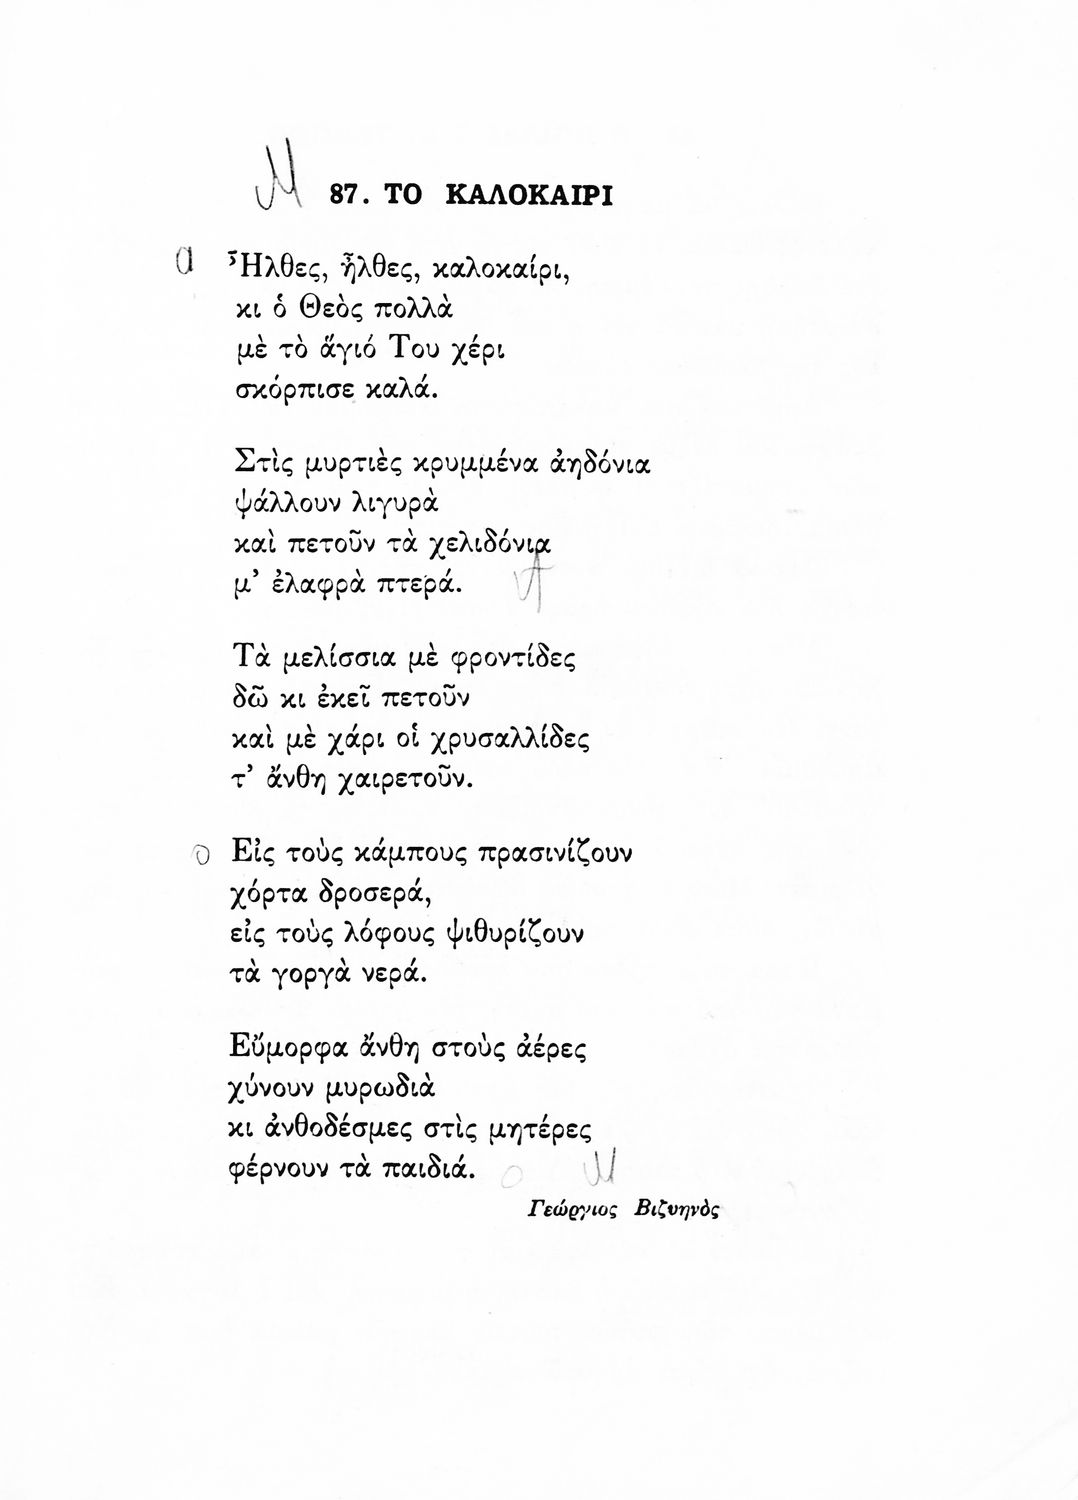 87. ΤΟ ΚΑΛΟΚΑΙΡΙ
Ἦλθες, ἦλθες, καλοκαίρι,
κι ὁ Θεὸς πολλὰ
μὲ τὸ ἅγιό Του χέρι
σκόρπισε καλά.
Στὶς μυρτιὲς κρυμμένα ἀηδόνια
ψάλλουν λιγυρὰ
καὶ πετοῦν τὰ χελιδόνια
μ’ ἐλαφρὰ πτερά.
Τὰ μελίσσια μὲ φροντίδες
δῶ κι ἐκεῖ πετοῦν
καὶ μὲ χάρι οἱ χρυσαλλίδες
τ’ ἄνθη χαιρετοῦν.
Εἰς τοὺς κάμπους πρασινίζουν
χόρτα δροσερά,
εἰς τοὺς λόφους ψιθυρίζουν
τὰ γοργὰ νερά.
Εὔμορφα ἄνθη στοὺς ἀέρες
χύνουν μυρωδιὰ
κι ἀνθοδέσμες στὶς μητέρες
φέρνουν τὰ παιδιά.
Γεώργιος Βιζυηνὸς